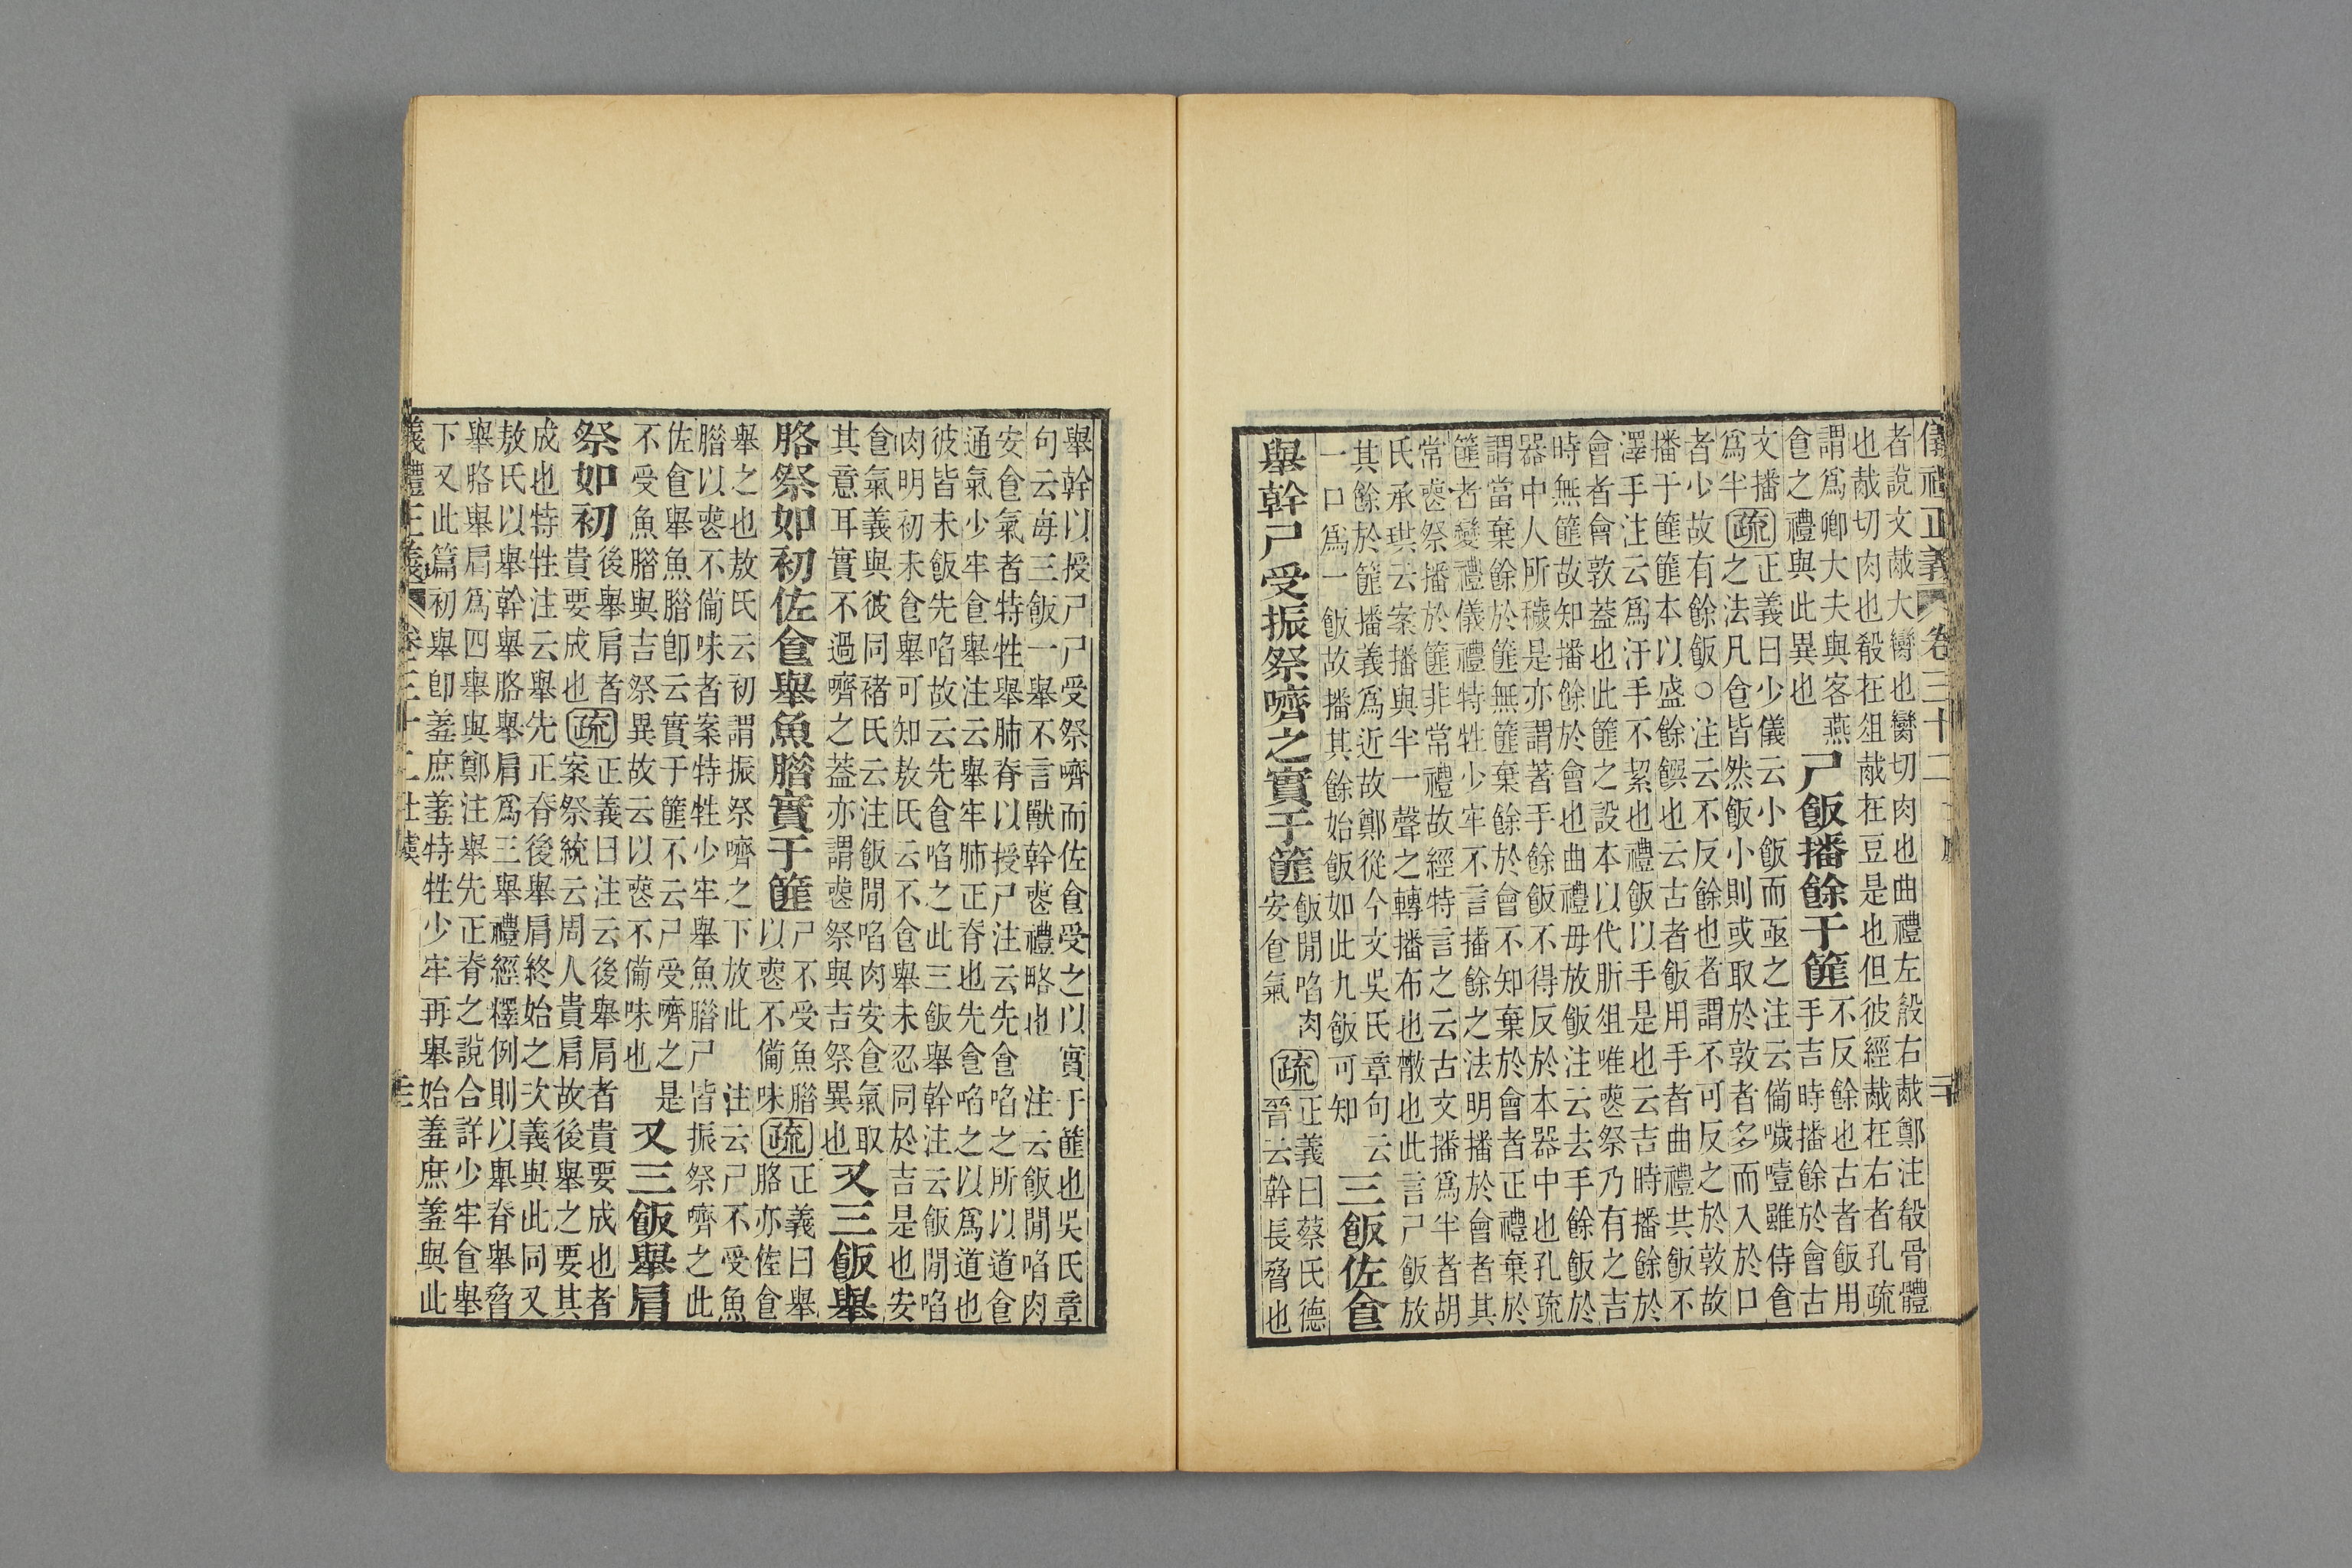 儀禮正義 卷三十二 士虞 二十
者說文胾大臠也臠切肉也曲禮左殽右胾鄭注殽骨體
也胾切肉也殽在俎胾在豆是也但彼經胾在右者孔疏
謂爲卿大夫與客燕
食之禮與此異也
尸飯播餘于篚
不反餘也古者飯用
手吉時播餘於會古
文播
爲半
疏
正義曰少儀云小飯而亟之注云備噦噎雖侍食
之法凡食皆然飯小則或取於敦者多而入於口
者少故有餘飯○注云不反餘也者謂不可反之於敦故
播于篚篚本以盛餘饌也云古者飯用手者曲禮共飯不
澤手注云爲汙手不絜也禮飯以手是也云吉時播餘於
會者會敦蓋也此篚之設本以代肵俎唯喪祭乃有之吉
時無篚故知播餘於會也曲禮毋放飯注云去手餘飯於
器中人所穢是亦謂著手餘飯不得反於本器中也孔疏
謂當棄餘於篚無篚棄餘於會不知棄於會者正禮棄於
篚者變禮儀禮特牲少牢不言播餘之法明播於會者其
常喪祭播於篚非常禮故經特言之云古文播爲半者胡
氏承珙云案播與半一聲之轉播布也㪚也此言尸飯放
其餘於篚播義爲近故鄭從今文吳氏章句云
一口爲一飯故播其餘始飯如此九飯可知
三飯佐食
舉幹尸受振祭嚌之實于篚
飯閒啗肉
安食氣
疏
正義曰蔡氏德
晉云幹長脅也
舉幹以授尸尸受祭嚌而佐食受之以實于篚也吳氏章
句云每三飯一舉不言獸幹喪禮略也 注云飯閒啗肉
安食氣者特牲舉肺脊以授尸注云先食啗之所以道食
通氣少牢食舉注云舉牢肺正脊也先食啗之以爲道也
彼皆未飯先啗故云先食啗之此三飯舉幹注云飯閒啗
肉明初未食舉可知敖氏云不食舉未忍同於吉是也安
食氣義與彼同褚氏云注飯閒啗肉安食氣取
其意耳實不過嚌之蓋亦謂喪祭與吉祭異也
又三飯舉
胳祭如初佐食舉魚腊實于篚
尸不受魚腊
以喪不備味
疏
正義曰舉
胳亦佐食
舉之也敖氏云初謂振祭嚌之下放此 注云尸不受魚
腊以喪不備味者案特牲少牢舉魚腊尸皆振祭嚌之此
佐食舉魚腊卽云實于篚不云尸受嚌之是
不受魚腊與吉祭異故云以喪不備味也
又三飯舉肩
祭如初
後舉肩者
貴要成也
疏
正義曰注云後舉肩者貴要成也者
案祭統云周人貴肩故後舉之要其
成也特牲注云舉先正脊後舉肩終始之次義與此同又
敖氏以舉幹舉胳舉肩爲三舉禮經釋例則以舉脊舉脅
舉胳舉肩爲四舉與鄭注舉先正脊之說合詳少牢食舉
下又此篇初舉卽羞庶羞特牲少牢再舉始羞庶羞與此
儀禮正義 卷三十二 士虞